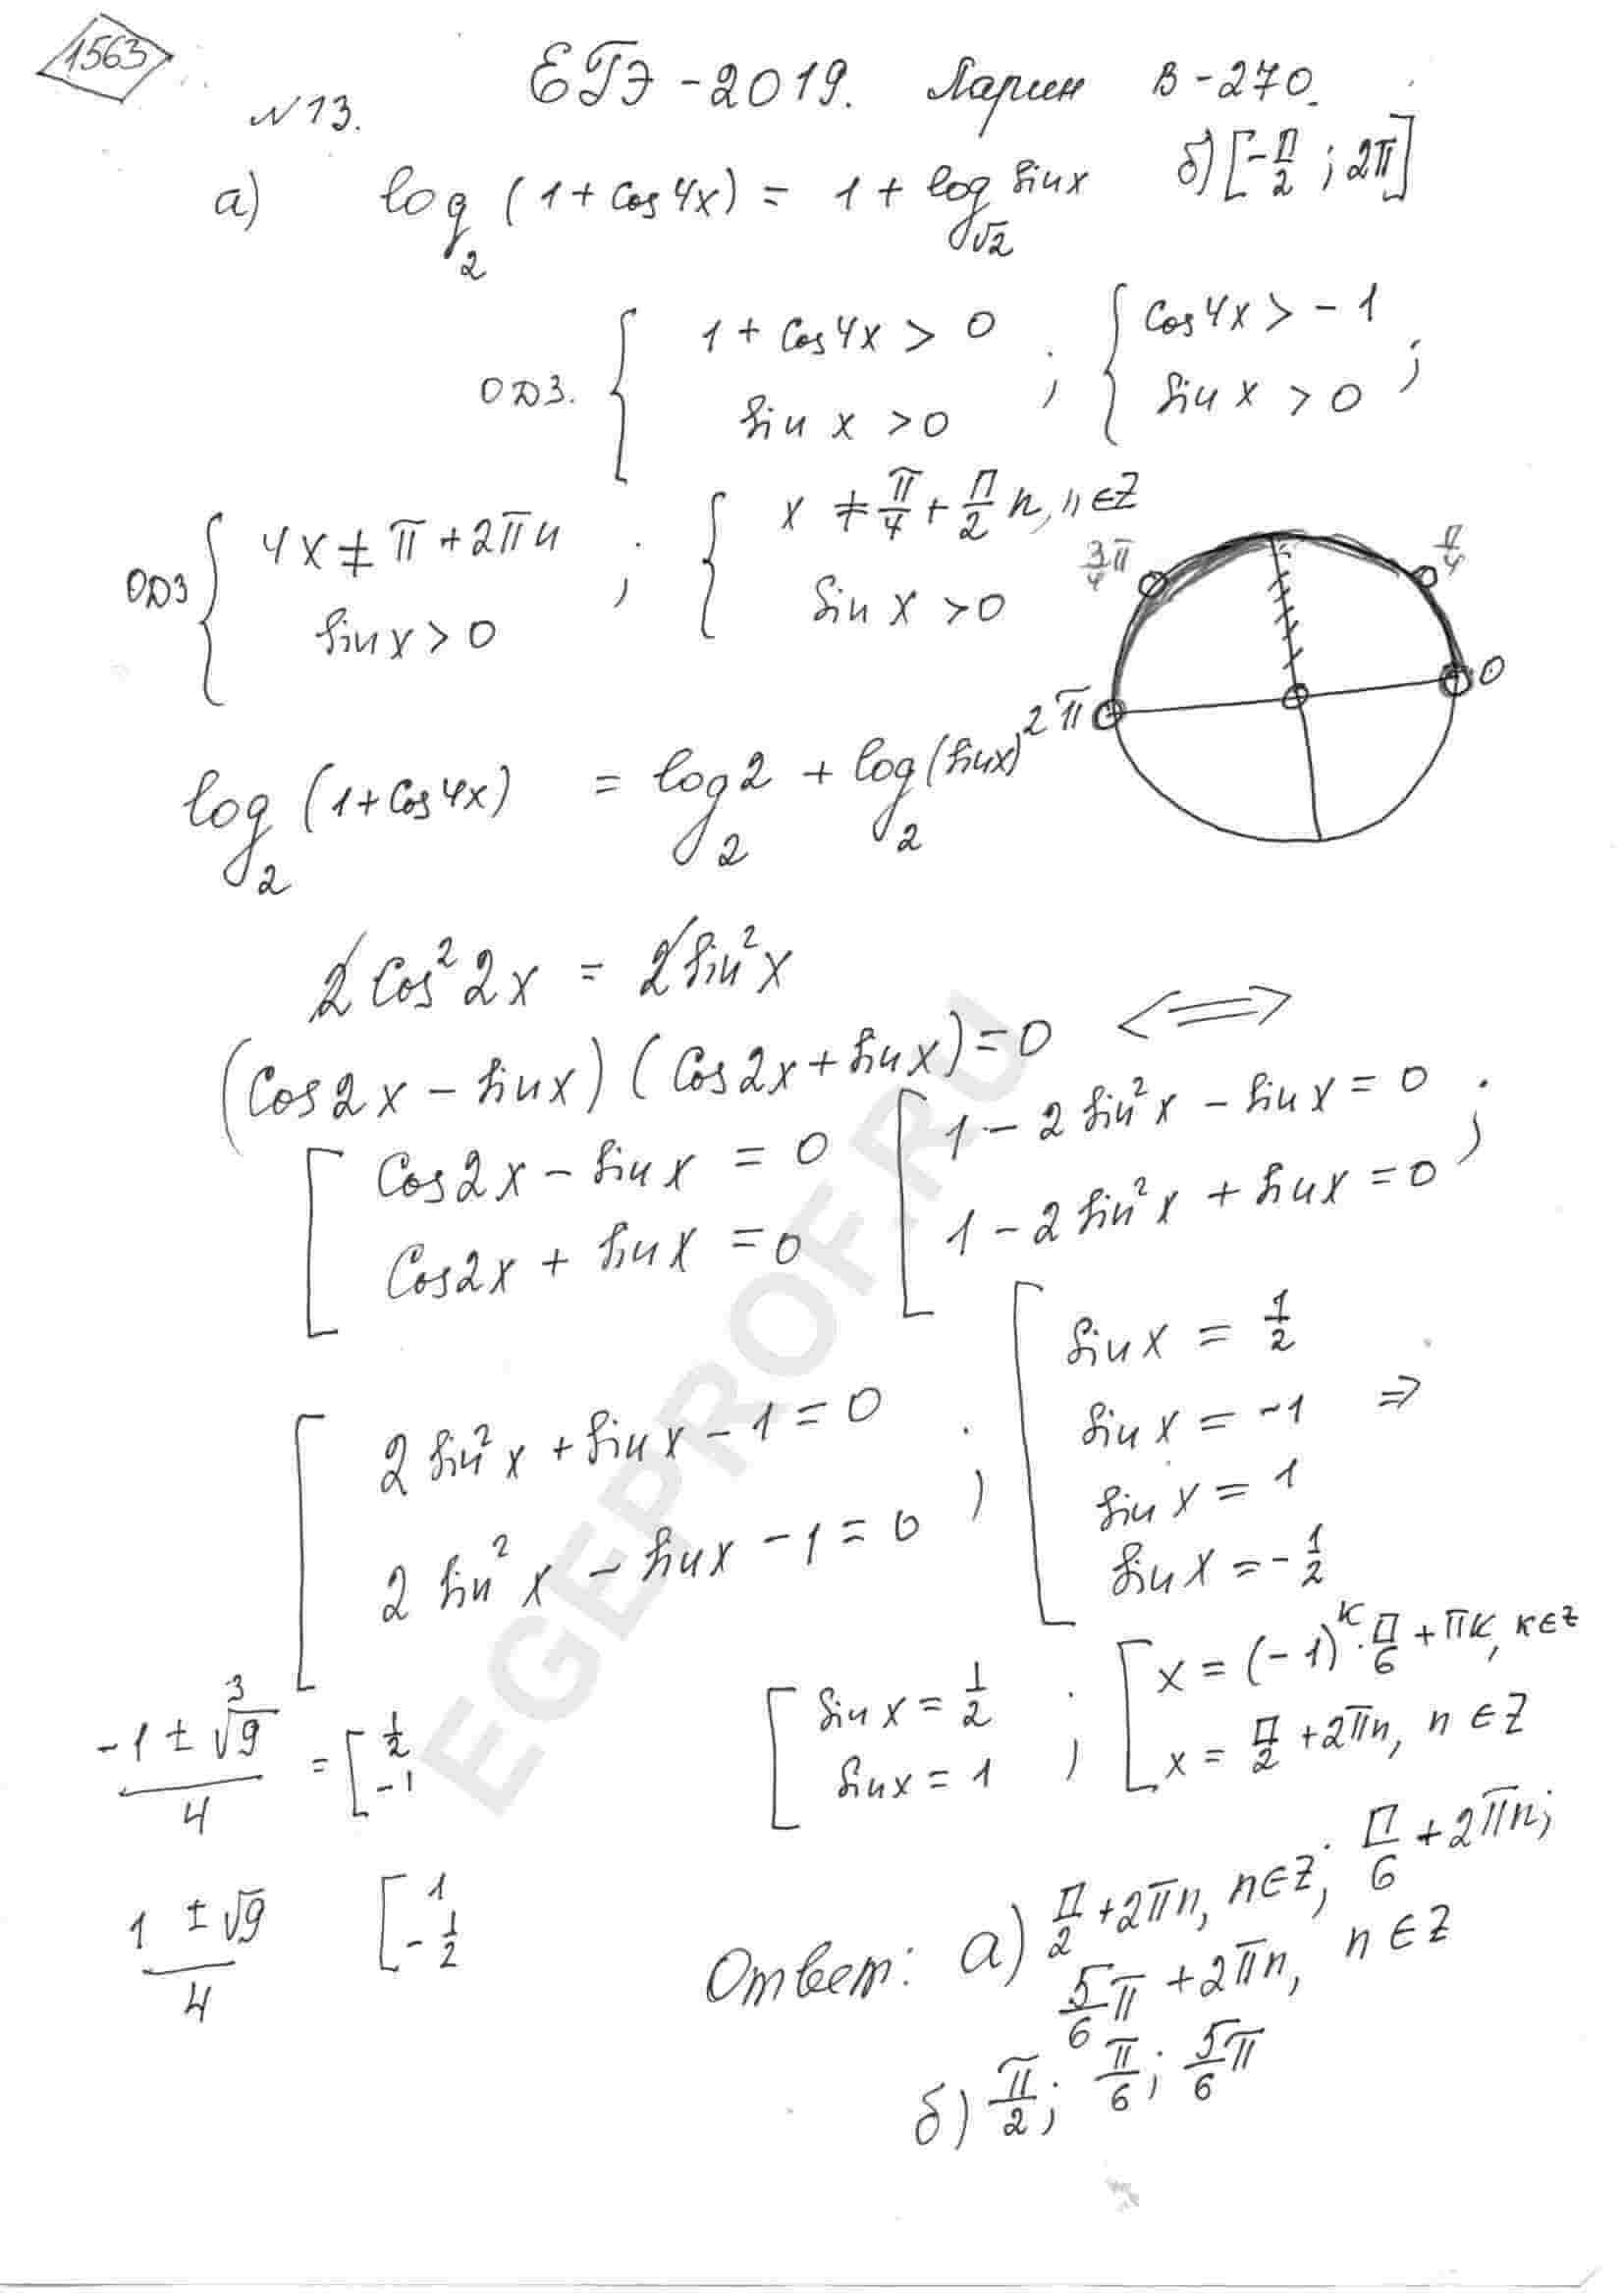 1563
ЕГЭ - 2019. Ларин В - 270.
№13.
а) log₂(1 + cos4x) = 1 + log_√2 sinx б) [-π/2 ; 2π]
ОДЗ. { 1 + cos4x > 0 ; { cos4x > -1 ;
sin x > 0 sin x > 0
ОДЗ { 4x ≠ π + 2πn ; { x ≠ π/4 + π/2 n, n ∈ Z
sinx > 0 sin x > 0
3/4 π π/4
2π 0
log₂(1 + cos4x) = log₂2 + log₂(sinx)²
2cos²2x = 2sin²x
(cos2x - sinx)(cos2x + sinx) = 0 <=>
[ cos2x - sinx = 0 [ 1 - 2sin²x - sinx = 0 ;
cos2x + sinx = 0 1 - 2sin²x + sinx = 0
[ 2sin²x + sinx - 1 = 0 ; [ sinx = 1/2
2sin²x - sinx - 1 = 0 sinx = -1 =>
sinx = 1
sinx = -1/2
(-1 ± √9)/4 = [ 1/2 [ sinx = 1/2 ; [ x = (-1)^k · π/6 + πk, k ∈ Z
3 -1 sinx = 1 x = π/2 + 2πn, n ∈ Z
(1 ± √9)/4 [ 1
-1/2
Ответ: а) π/2 + 2πn, n ∈ Z; π/6 + 2πn;
5/6 π + 2πn, n ∈ Z
б) π/2; π/6; 5/6 π
EGEPROF.RU